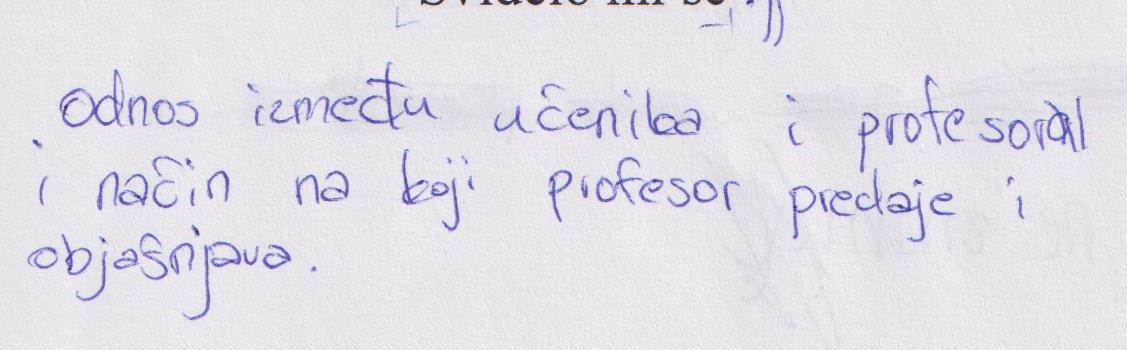 Svidelo mi se
Odnos između učenika i profesora
i način na koji profesor predaje i
objašnjava.